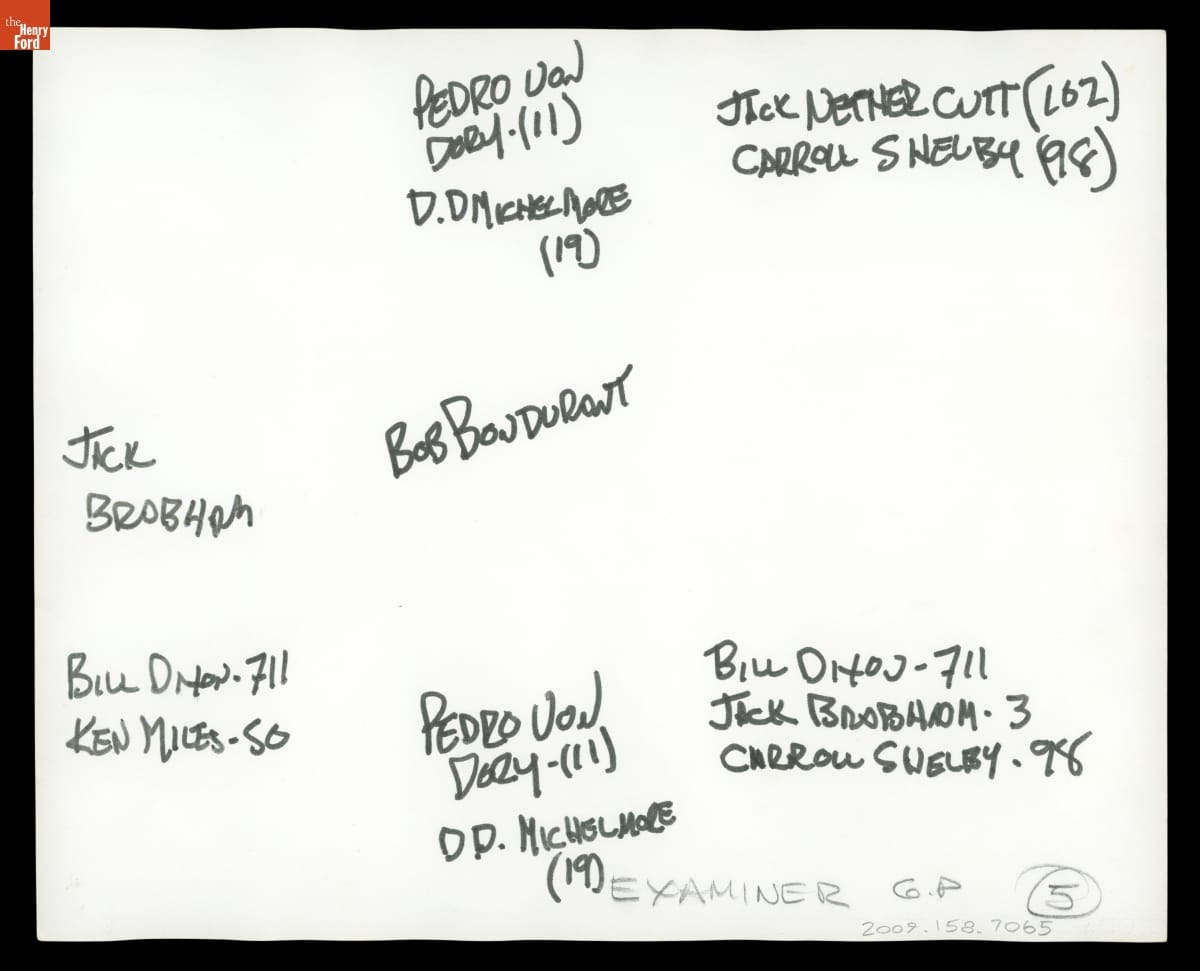 the
Henry
Ford
PEDRO VON
DORY-(11)
D.D MICHELMORE
(19)
JACK NETHERCUTT (102)
CARROLL SHELBY (98)
JACK
BRABHAM
BOB BONDURANT
BILL DIXON-711
KEN MILES-50
PEDRO VON
DORY-(11)
D D. MICHELMORE
(19)
BILL DIXON-711
JACK BRABHAM-3
CARROLL SHELBY-98
EXAMINER G.P
5
2009.158.7065